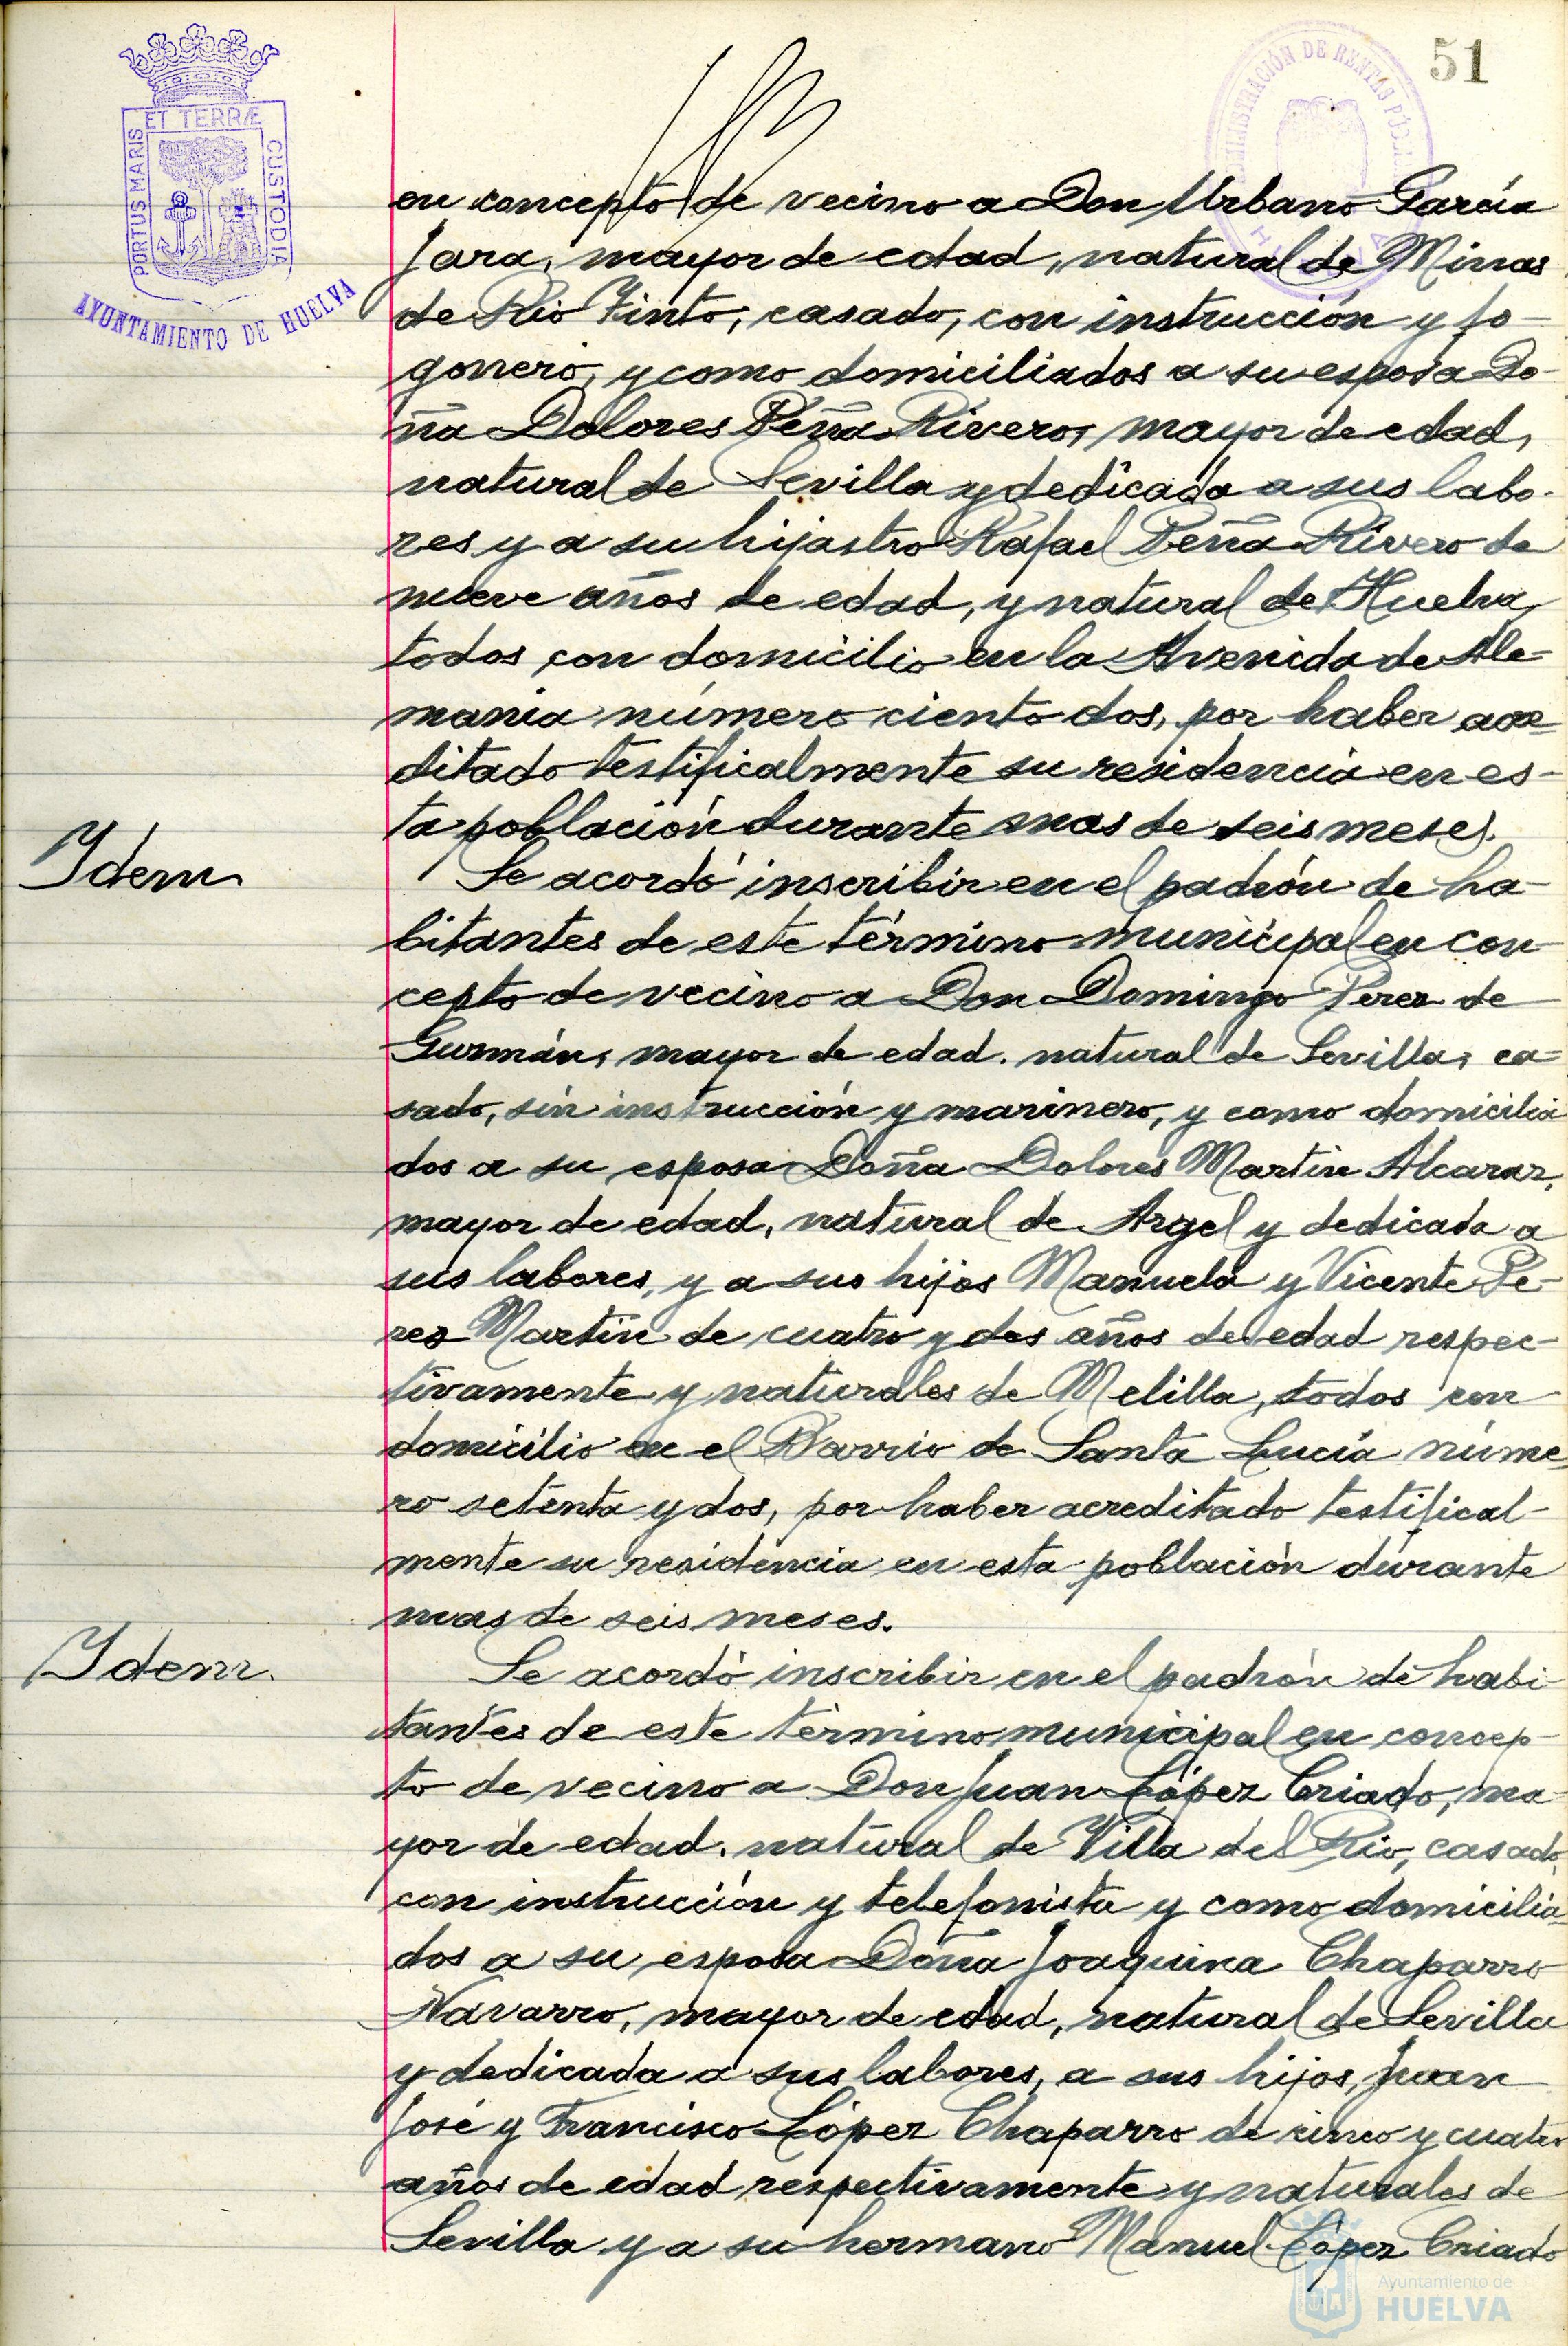 51
ET TERRÆ
PORTUS MARIS
CUSTODIA
AYUNTAMIENTO DE HUELVA
ADMINISTRACIÓN DE RENTAS PÚBLICAS
HUELVA
en concepto de vecino a Don Urbano García
Jara, mayor de edad, natural de Minas
de Rio Tinto, casado, con instrucción y fo-
gonero, y como domiciliados a su esposa Do-
ña Dolores Peña Rivero, mayor de edad,
natural de Sevilla y dedicada a sus labo-
res y a su hijastro Rafael Peña Rivero de
nueve años de edad, y natural de Huelva,
todos con domicilio en la Avenida de Ale-
mania número ciento dos, por haber acre-
ditado testificalmente su residencia en es-
ta población durante mas de seis meses.
Idem
Se acordó inscribir en el padrón de ha-
bitantes de este término municipal en con-
cepto de vecino a Don Domingo Perez de
Guzmán, mayor de edad, natural de Sevilla, ca-
sado, sin instrucción y marinero, y como domicilia
dos a su esposa Doña Dolores Martin Alcaraz,
mayor de edad, natural de Argel y dedicada a
sus labores, y a sus hijos Manuela y Vicente Pe-
rez Martin de cuatro y dos años de edad respec-
tivamente y naturales de Melilla, todos con
domicilio en el Barrio de Santa Lucía núme-
ro setenta y dos, por haber acreditado testifical-
mente su residencia en esta población durante
mas de seis meses.
Idem.
Se acordó inscribir en el padrón de habi-
tantes de este término municipal en concep-
to de vecino a Don Juan López Criado, ma-
yor de edad, natural de Villa del Rio, casado,
con instrucción y telefonista y como domicilia-
dos a su esposa Doña Joaquina Chaparro
Navarro, mayor de edad, natural de Sevilla
y dedicada a sus labores, a sus hijos, Juan
José y Francisco López Chaparro de cinco y cuatro
años de edad respectivamente y naturales de
Sevilla y a su hermano Manuel López Criado
Ayuntamiento de
HUELVA